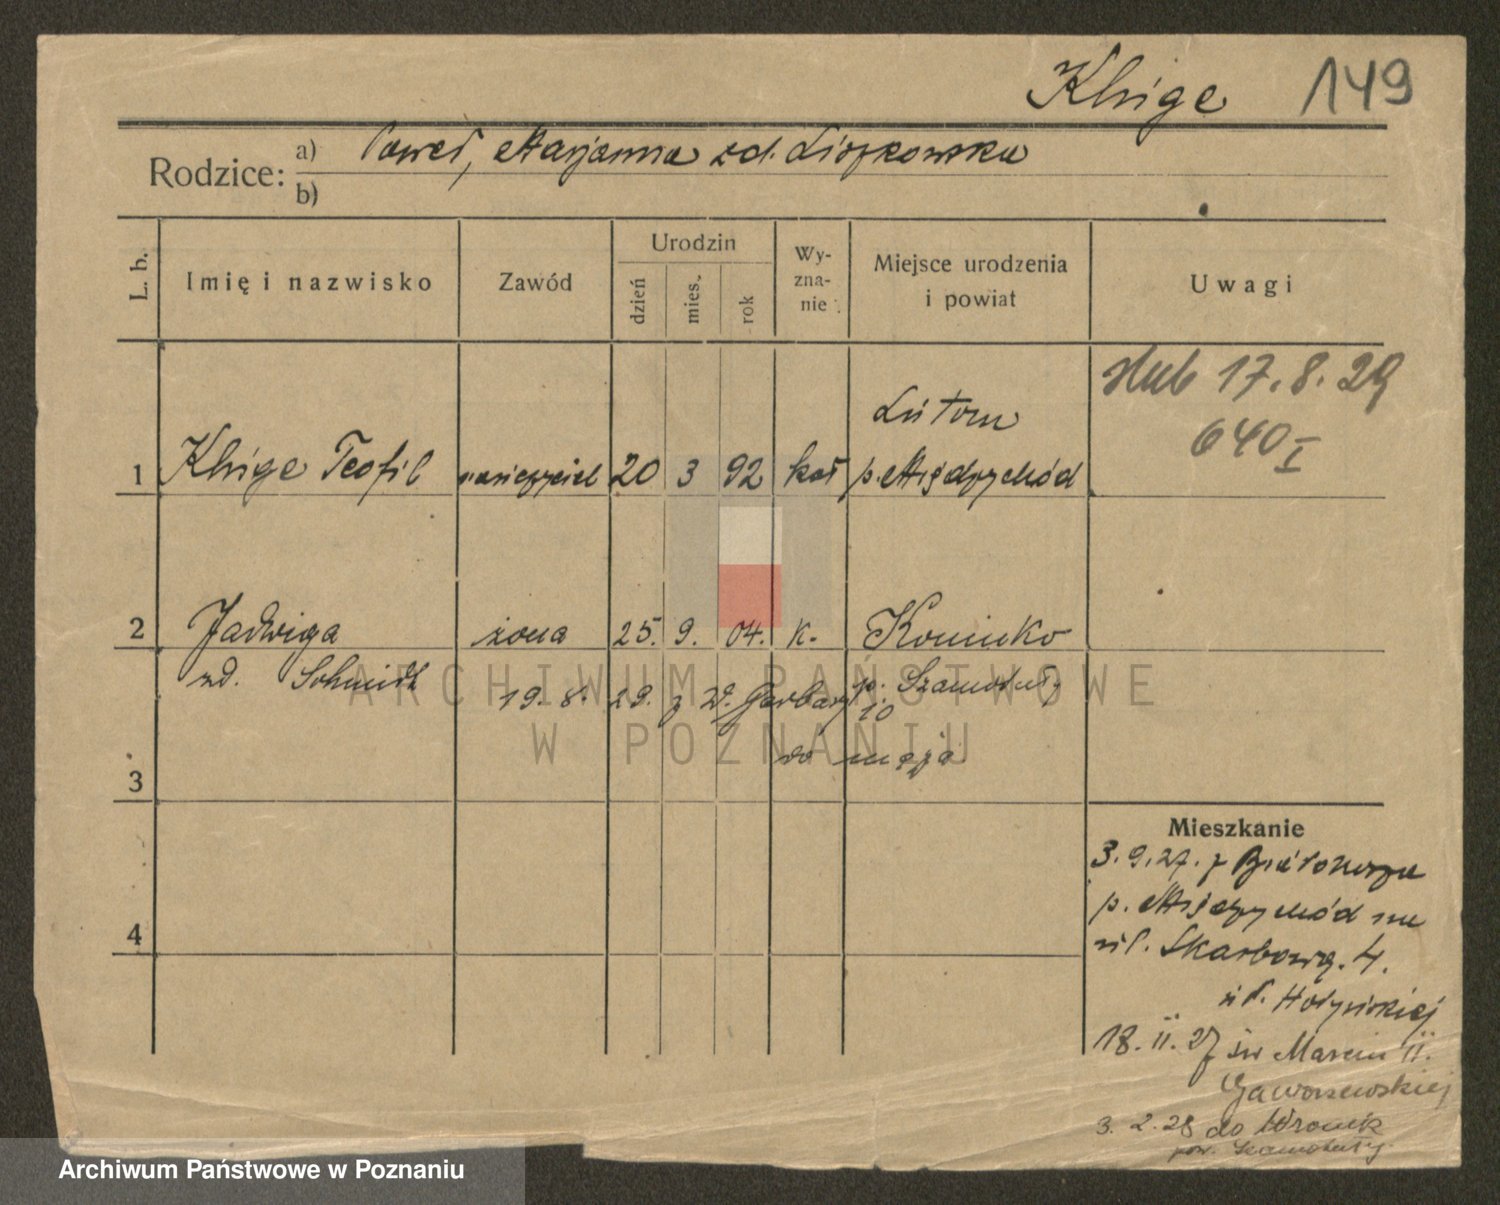 Kluge 149
Rodzice: a) Paweł, Marjanna zd. Liszkowska
b)
L. b. Imię i nazwisko Zawód Urodzin dzień mies. rok Wyznanie Miejsce urodzenia i powiat Uwagi
ślub 17.8.29
640 I
Lutom
1 Kluge Teofil nauczyciel 20 3 92 kat p. Międzychód
2 Jadwiga żona 25. 9. 04. k. Koninko
zd. Schmidt p. Szamotuły
19. 8. 29. z W. Garbary 10
do męża
3
4
Mieszkanie
3.9.27. z Białokosza
p. Międzychód na
ul. Skarbową. 4.
18.11.27 św Marcin 11.
Gaworzewskiej
3.2.28 do Wronek
pow. Szamotuły
ARCHIWUM PAŃSTWOWE
W POZNANIU
Archiwum Państwowe w Poznaniu